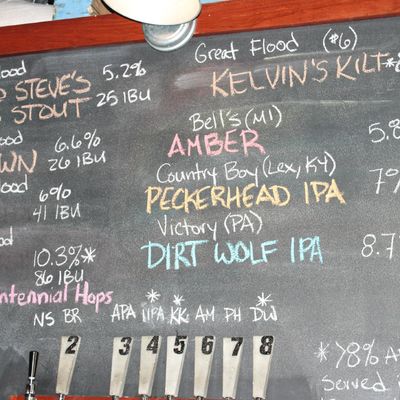 ood
STEVE'S 5.2%
STOUT 25 IBU
ood
WN 6.6%
26 IBU
ood
6%
41 IBU
od
10.3%*
86 IBU
ntennial Hops
NS BR APA IIPA KK AM PH DW
* * *
2 3 4 5 6 7 8
Great Flood (#6)
KELVIN'S KILT *8
Bell's (MI)
AMBER 5.8
Country Boy (Lex, KY)
PECKERHEAD IPA 7%
Victory (PA)
DIRT WOLF IPA 8.7
*>8% A
Served i